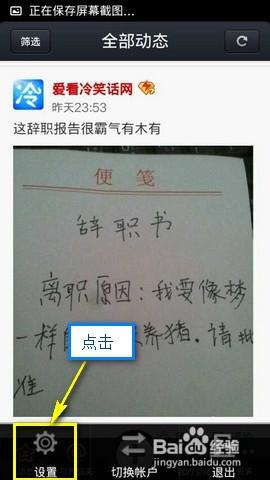 正在保存屏幕截图...
筛选
全部动态
爱看冷笑话网
昨天23:53
这辞职报告很霸气有木有
冷
便笺
辞职书
离职原因：我要像梦
一样
养猪．请批
准
点击
设置
切换帐户
退出
Baidu经验
jingyan.baidu.com